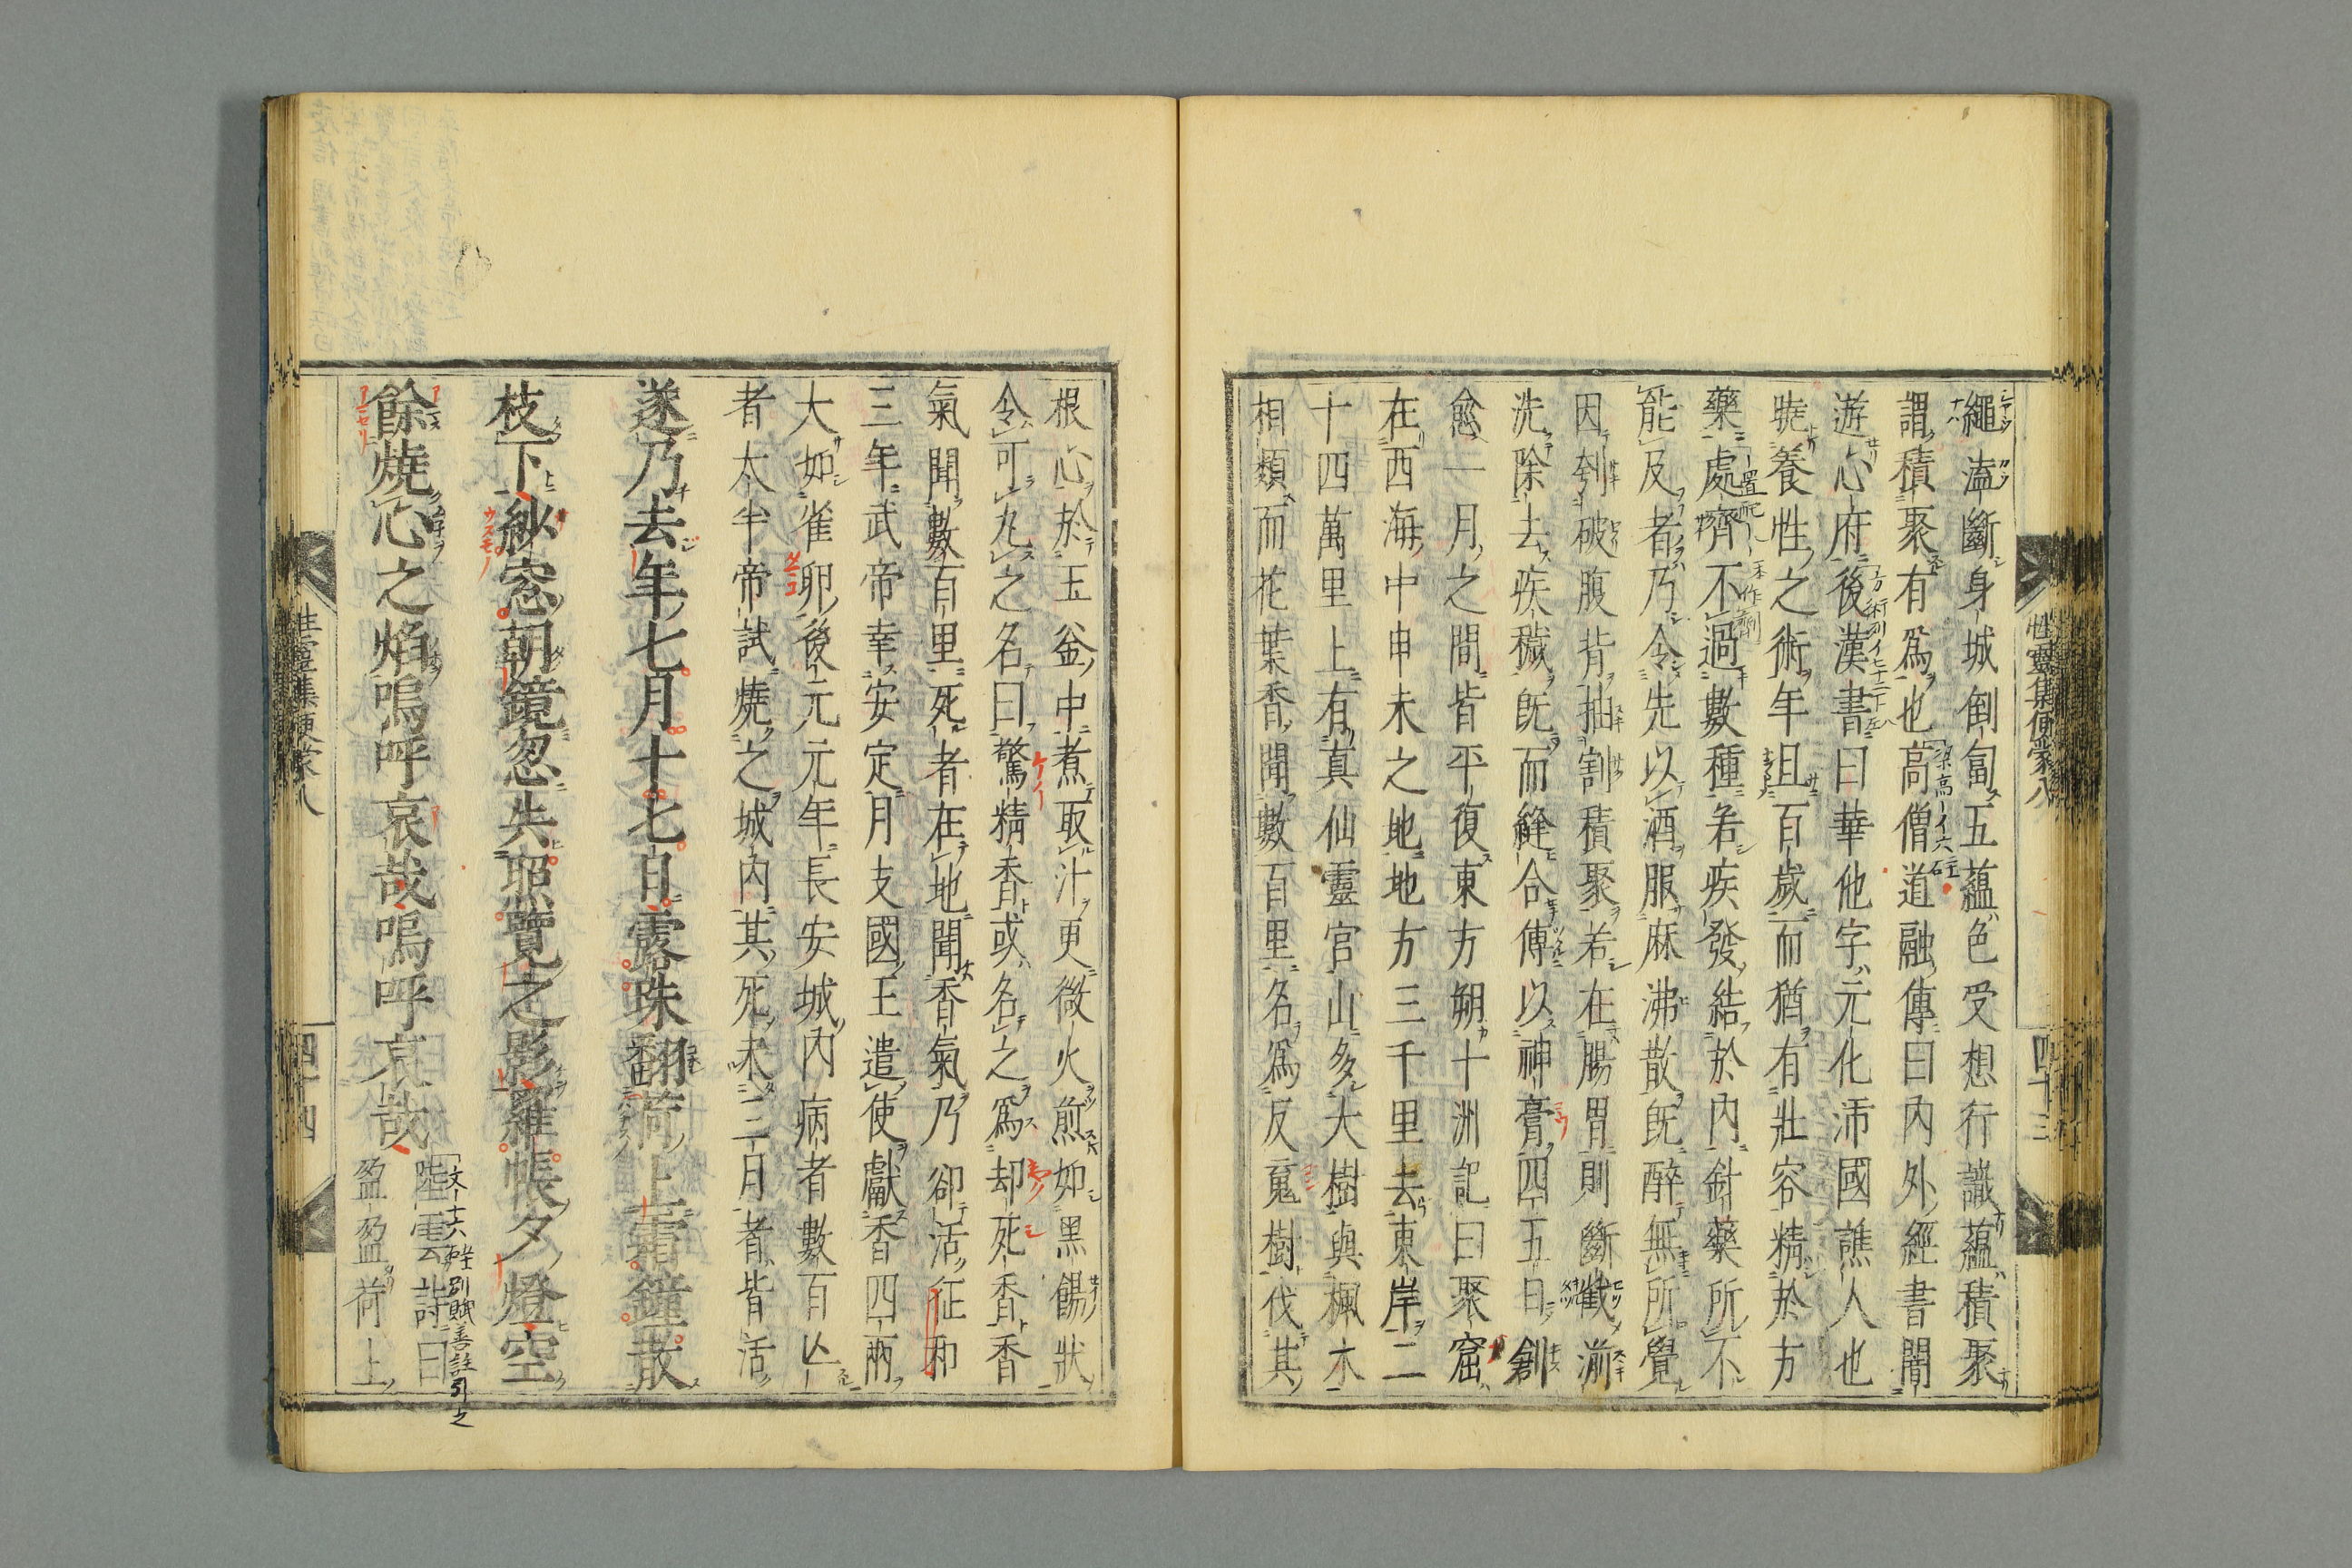 性靈集便蒙八
四十三
繩溘斷身城倒匐五蘊色受想行識蘊積聚
謂積聚有爲也高僧道融傳曰內外經書闇
遊心府後漢書曰華他字元化沛國譙人也
曉養性之術年且百歲而猶有壯容精於方
藥處齊不過數種若疾發結於內針藥所不
能及者乃令先以酒服麻沸散既醉無所覺
因刳破腹背抽割積聚若在腸胃則斷截湔
洗除去疾穢既而縫合傅以神膏四五日創
愈一月之間皆平復東方朔十洲記曰聚窟
在西海中申未之地地方三千里去東岸二
十四萬里上有真仙靈官山多大樹與楓木
相類而花葉香聞數百里名爲反䰟樹伐其
根心於玉釜中煮取汁更微火煎如黑餳狀
令可丸之名曰驚精香或名之爲却死香香
氣聞數百里死者在地聞香氣乃卻活征和
三年武帝幸安定月支國王遣使獻香四兩
大如雀卵後元元年長安城內病者數百亾
者太半帝試燒之城內其死未三月者皆活
遂乃去年七月十七日露珠翻荷上霜鐘散
枝下紗窓朝鏡忽失照覽之影羅帳夕燈空
餘燒心之焰嗚呼哀哉嗚呼哀哉
陸雲詩曰
盈盈荷上
性靈集便蒙八
四十四